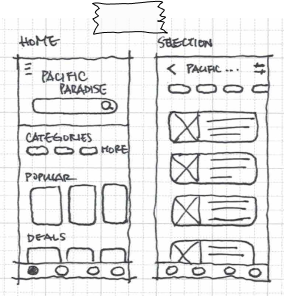 HOME
PACIFIC
PARADISE
CATEGORIES
MORE
POPULAR
DEALS
SELECTION
< PACIFIC ...